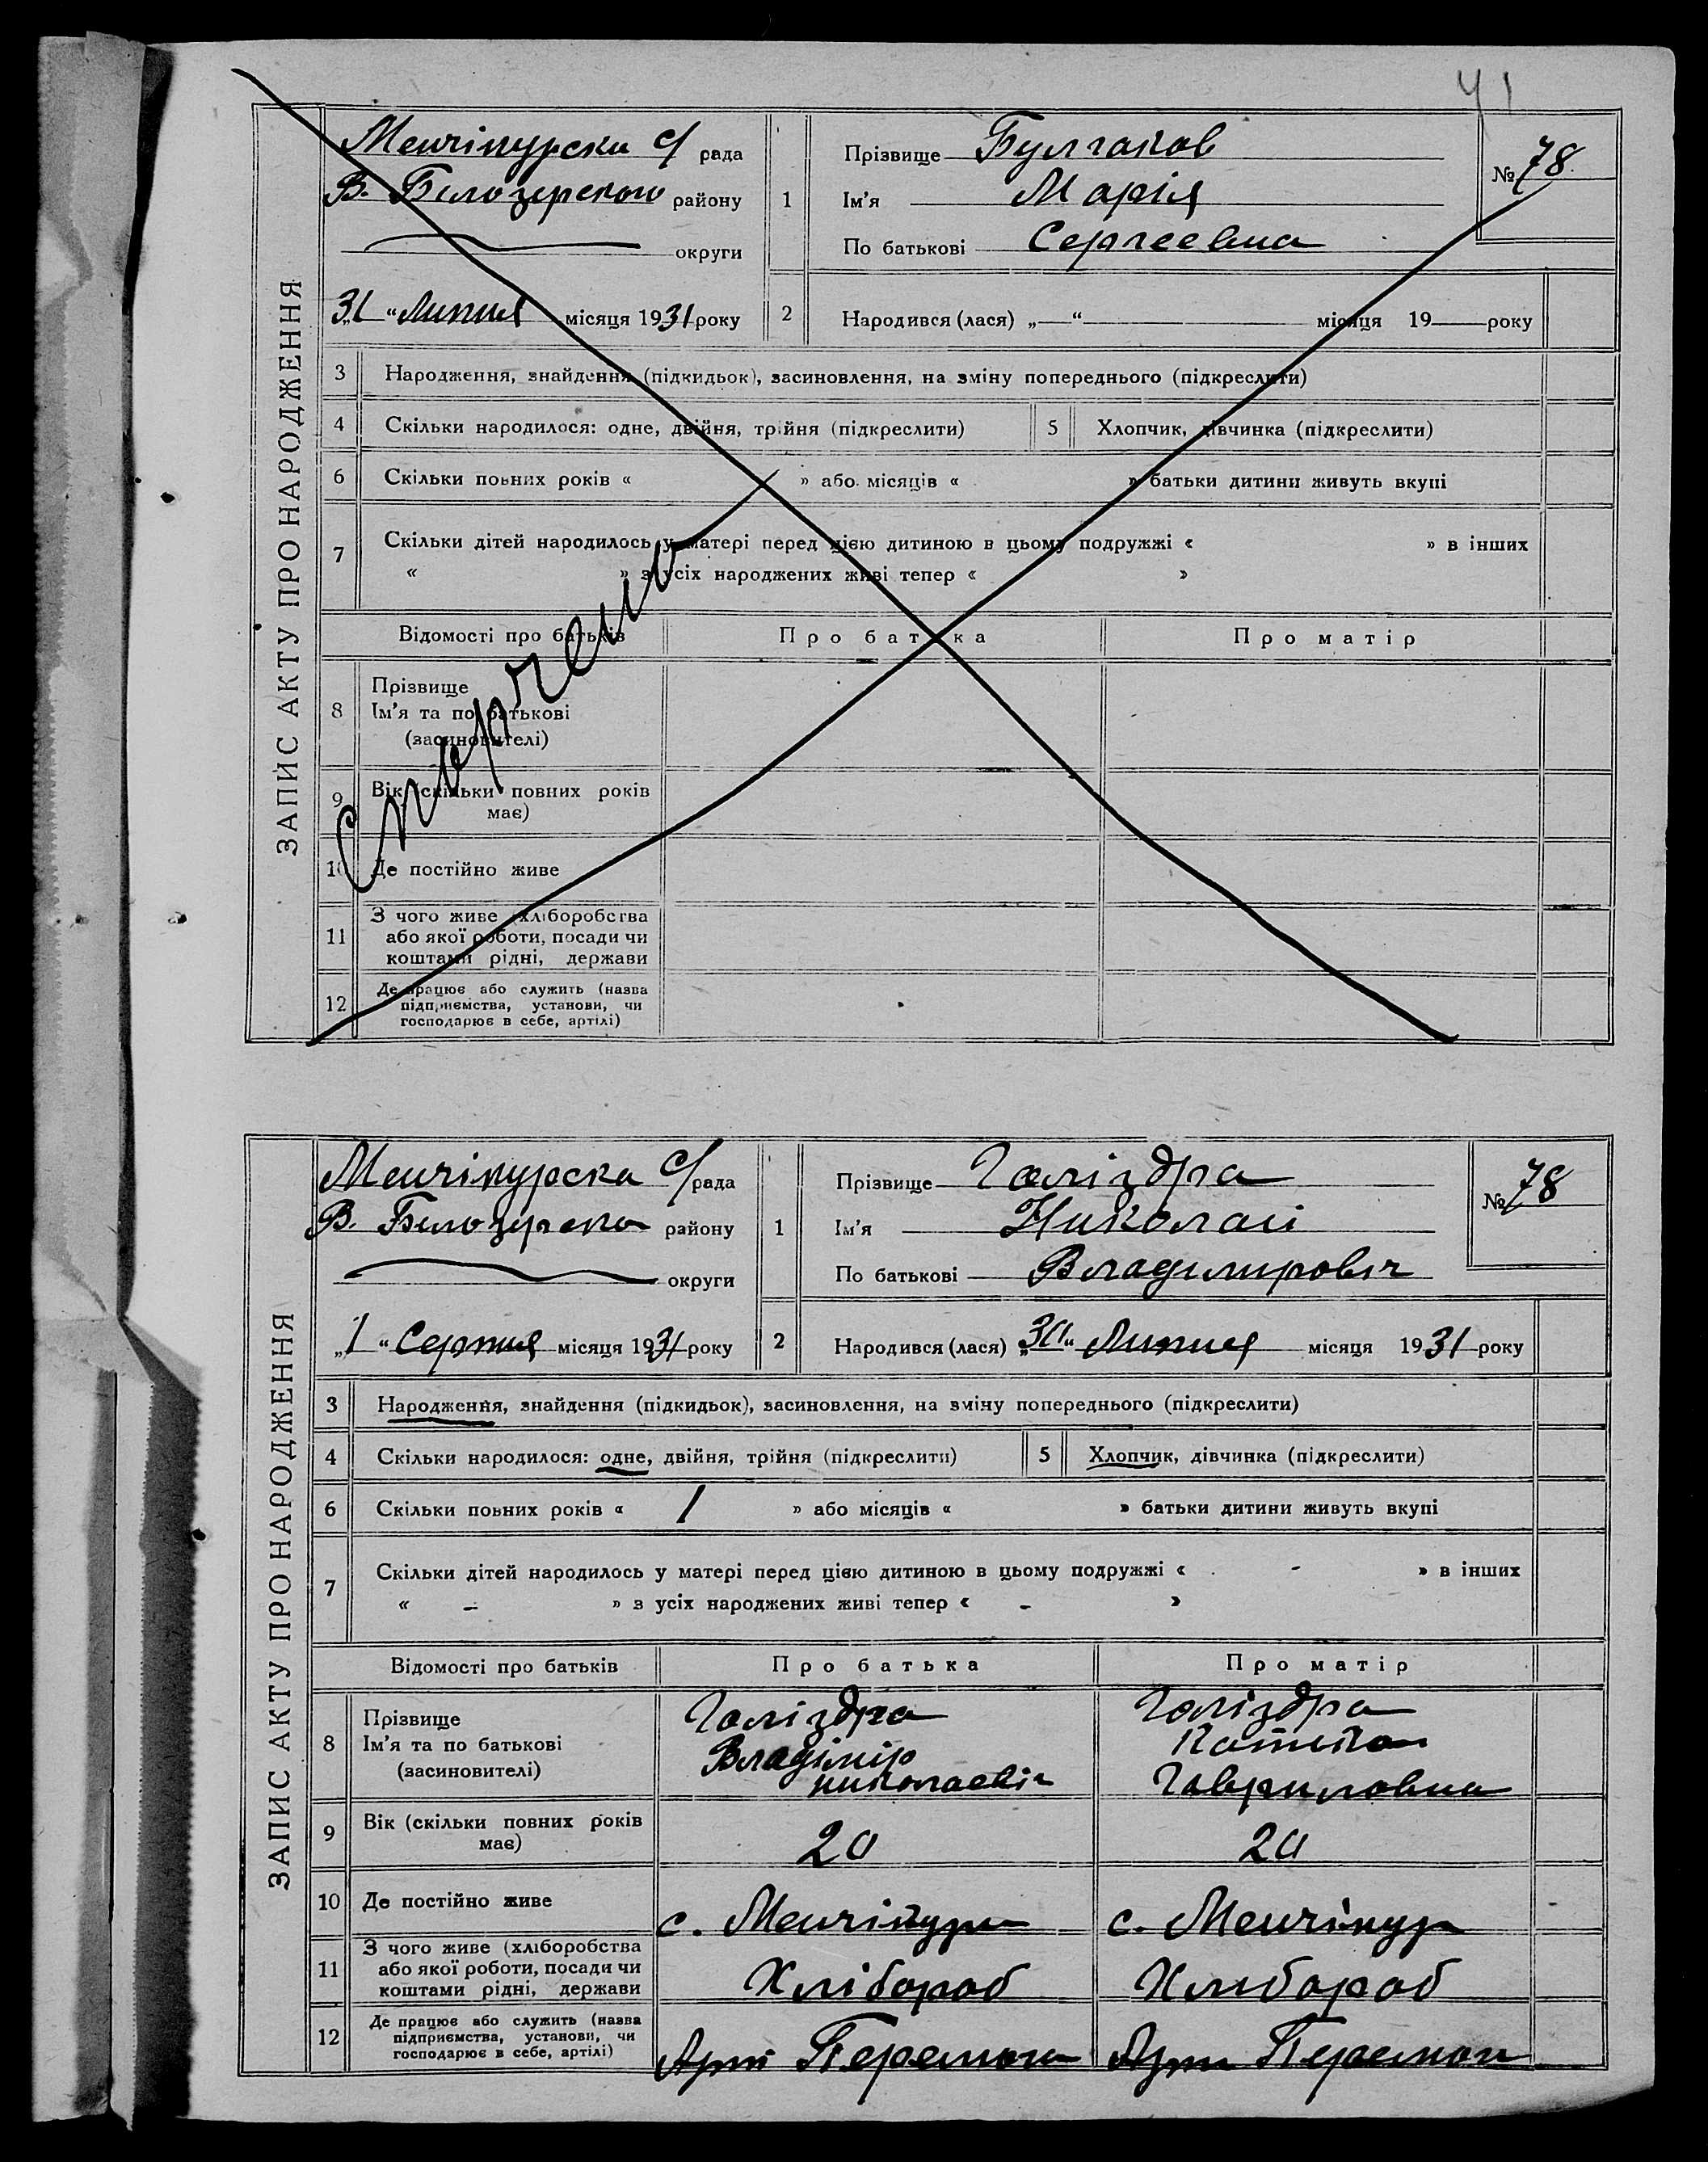 41
ЗАПИС АКТУ ПРО НАРОДЖЕННЯ
Менчікурска с/ рада
В. Білозерского району
округи
„31“ Липня місяця 1931 року
1 Прізвище Булгаков
Ім'я Марія
По батькові Сергеевна
№ 78
2 Народився (лася) „ “ місяця 19 року
3 Народження, знайдення (підкидьок), засиновлення, на зміну попереднього (підкреслити)
4 Скільки народилося: одне, двійня, трійня (підкреслити) 5 Хлопчик, дівчинка (підкреслити)
6 Скільки повних років « » або місяців « » батьки дитини живуть вкупі
7 Скільки дітей народилось у матері перед цією дитиною в цьому подружжі « » в інших
« » з усіх народжених живі тепер « »
Відомості про батьків Про батька Про матір
8 Прізвище
Ім'я та по батькові
(засиновителі)
9 Вік (скільки повних років
має)
10 Де постійно живе
11 З чого живе (хліборобства
або якої роботи, посади чи
коштами рідні, держави
12 Де працює або служить (назва
підприємства, установи, чи
господарює в себе, артілі)
ЗАПИС АКТУ ПРО НАРОДЖЕННЯ
Менчікурска с/ рада
В. Білозерска району
округи
„1“ Серпня місяця 1931 року
1 Прізвище Галіздра
Ім'я Николай
По батькові Владимировіч
№ 78
2 Народився (лася) „30“ Липня місяця 1931 року
3 Народження, знайдення (підкидьок), засиновлення, на зміну попереднього (підкреслити)
4 Скільки народилося: одне, двійня, трійня (підкреслити) 5 Хлопчик, дівчинка (підкреслити)
6 Скільки повних років « 1 » або місяців « » батьки дитини живуть вкупі
7 Скільки дітей народилось у матері перед цією дитиною в цьому подружжі « - » в інших
« - » з усіх народжених живі тепер « - »
Відомості про батьків Про батька Про матір
8 Прізвище Галіздра Галіздра
Ім'я та по батькові Владімір
(засиновителі) николаевіч Гавриловна
9 Вік (скільки повних років
має) 20 20
10 Де постійно живе с. Менчікур с. Менчікур
11 З чого живе (хліборобства
або якої роботи, посади чи Хлібороб Хлибороб
коштами рідні, держави
12 Де працює або служить (назва
підприємства, установи, чи Арт Перемога Арт Перемог
господарює в себе, артілі)